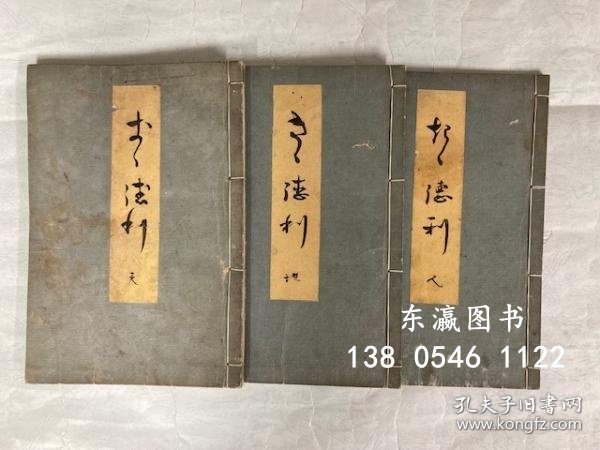 徳利
天
徳利
地
徳利
人
东瀛图书
138 0546 1122
孔夫子旧书网
www.kongfz.com